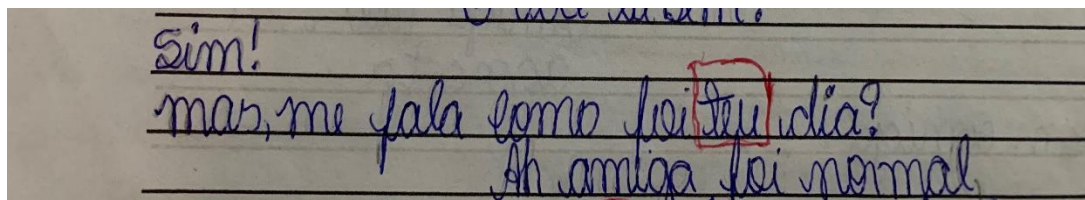 Sim!
mas, me fala como foi teu dia?
Ah amiga, foi normal,